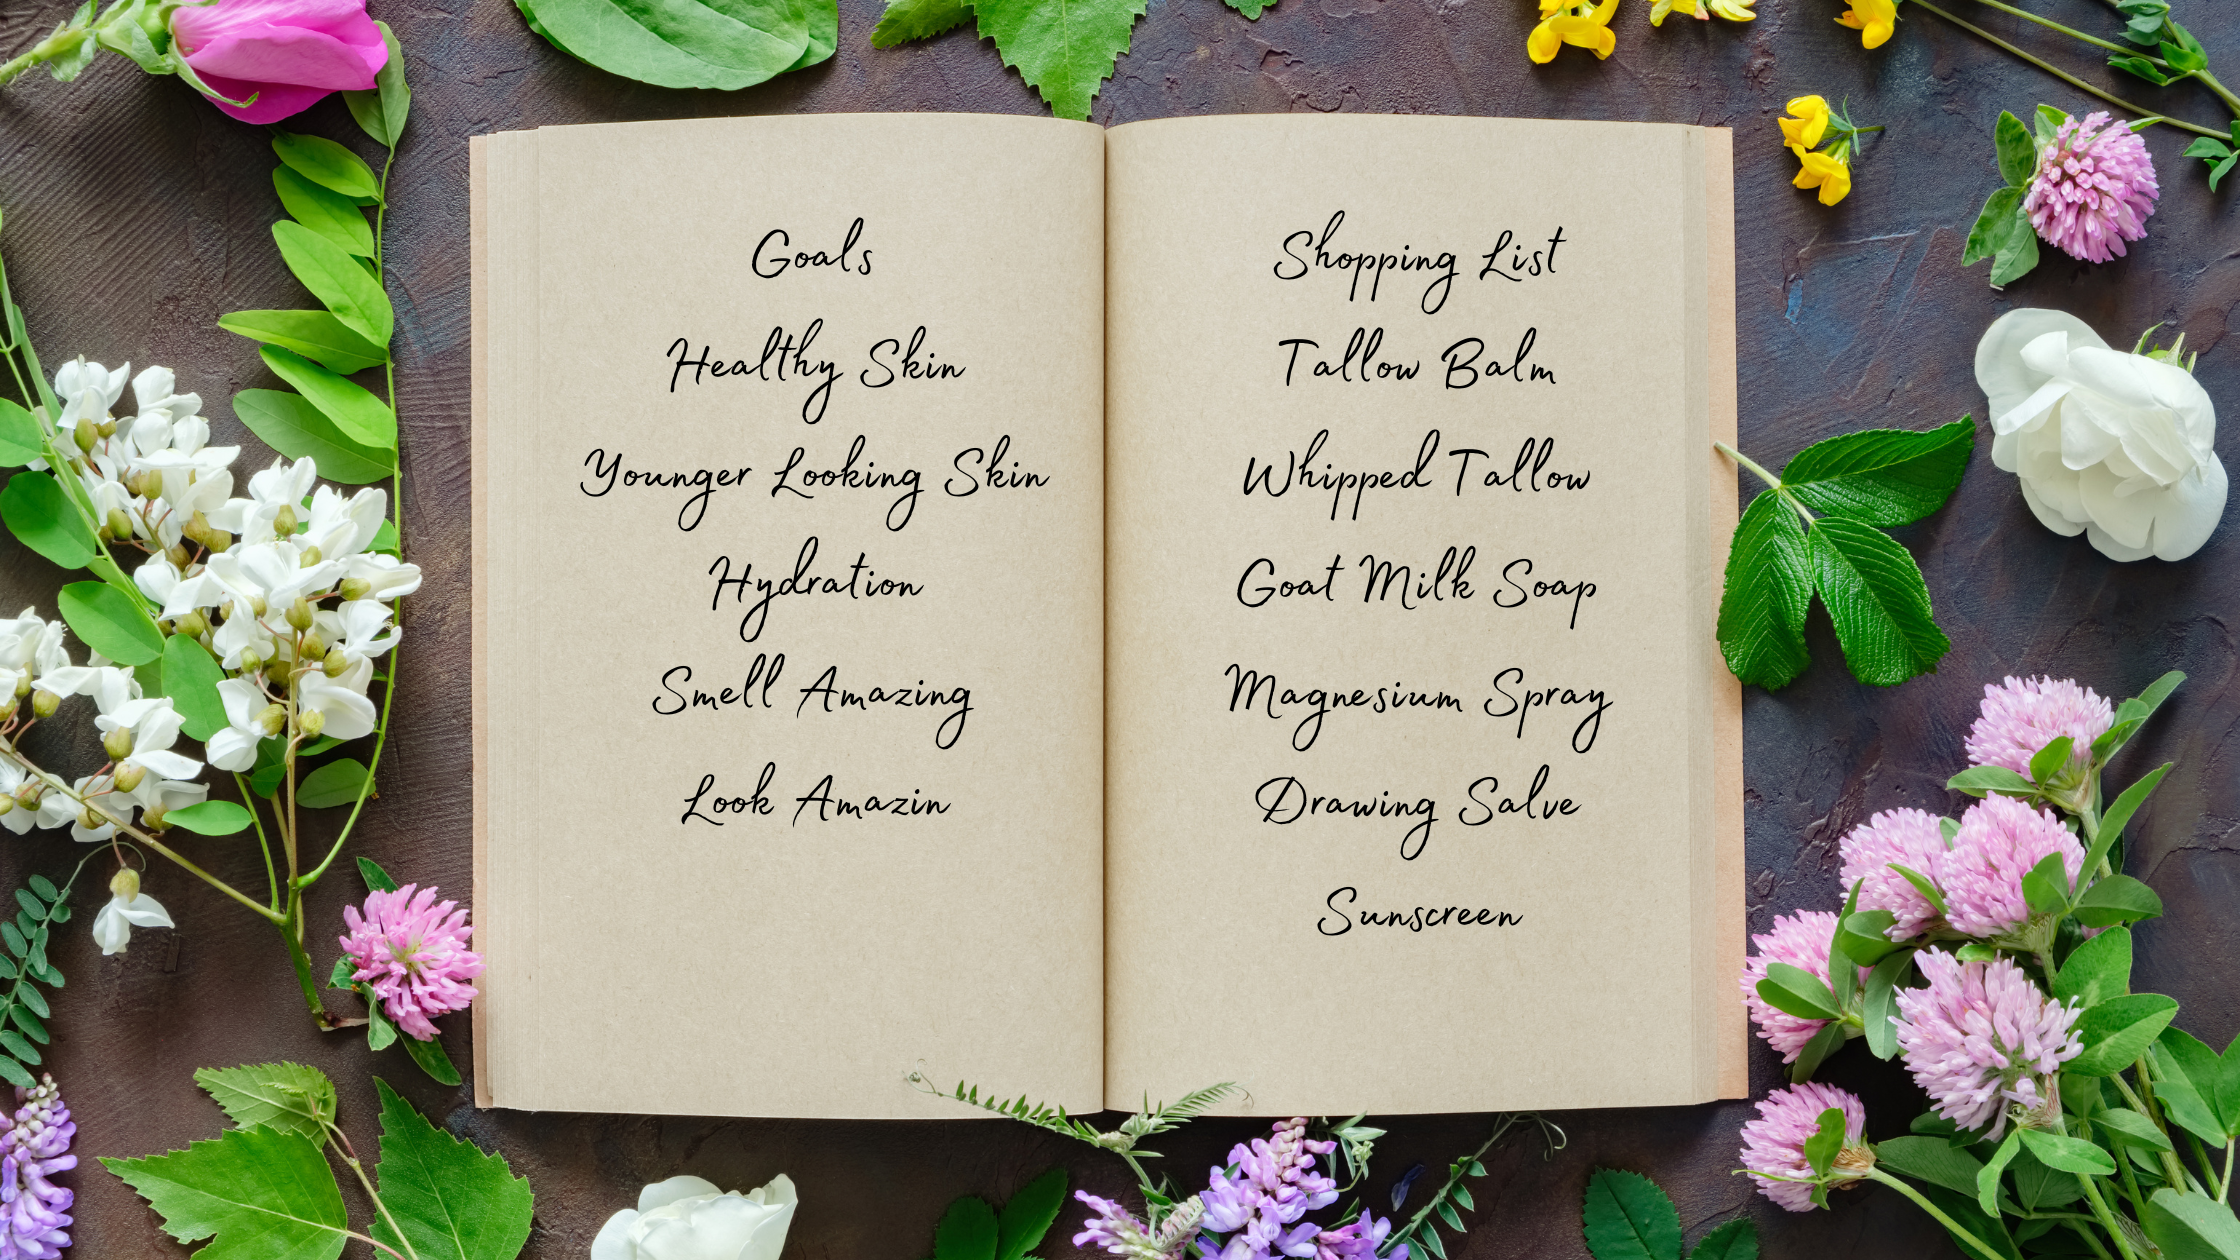 Goals
Healthy Skin
Younger Looking Skin
Hydration
Smell Amazing
Look Amazin
Shopping List
Tallow Balm
Whipped Tallow
Goat Milk Soap
Magnesium Spray
Drawing Salve
Sunscreen